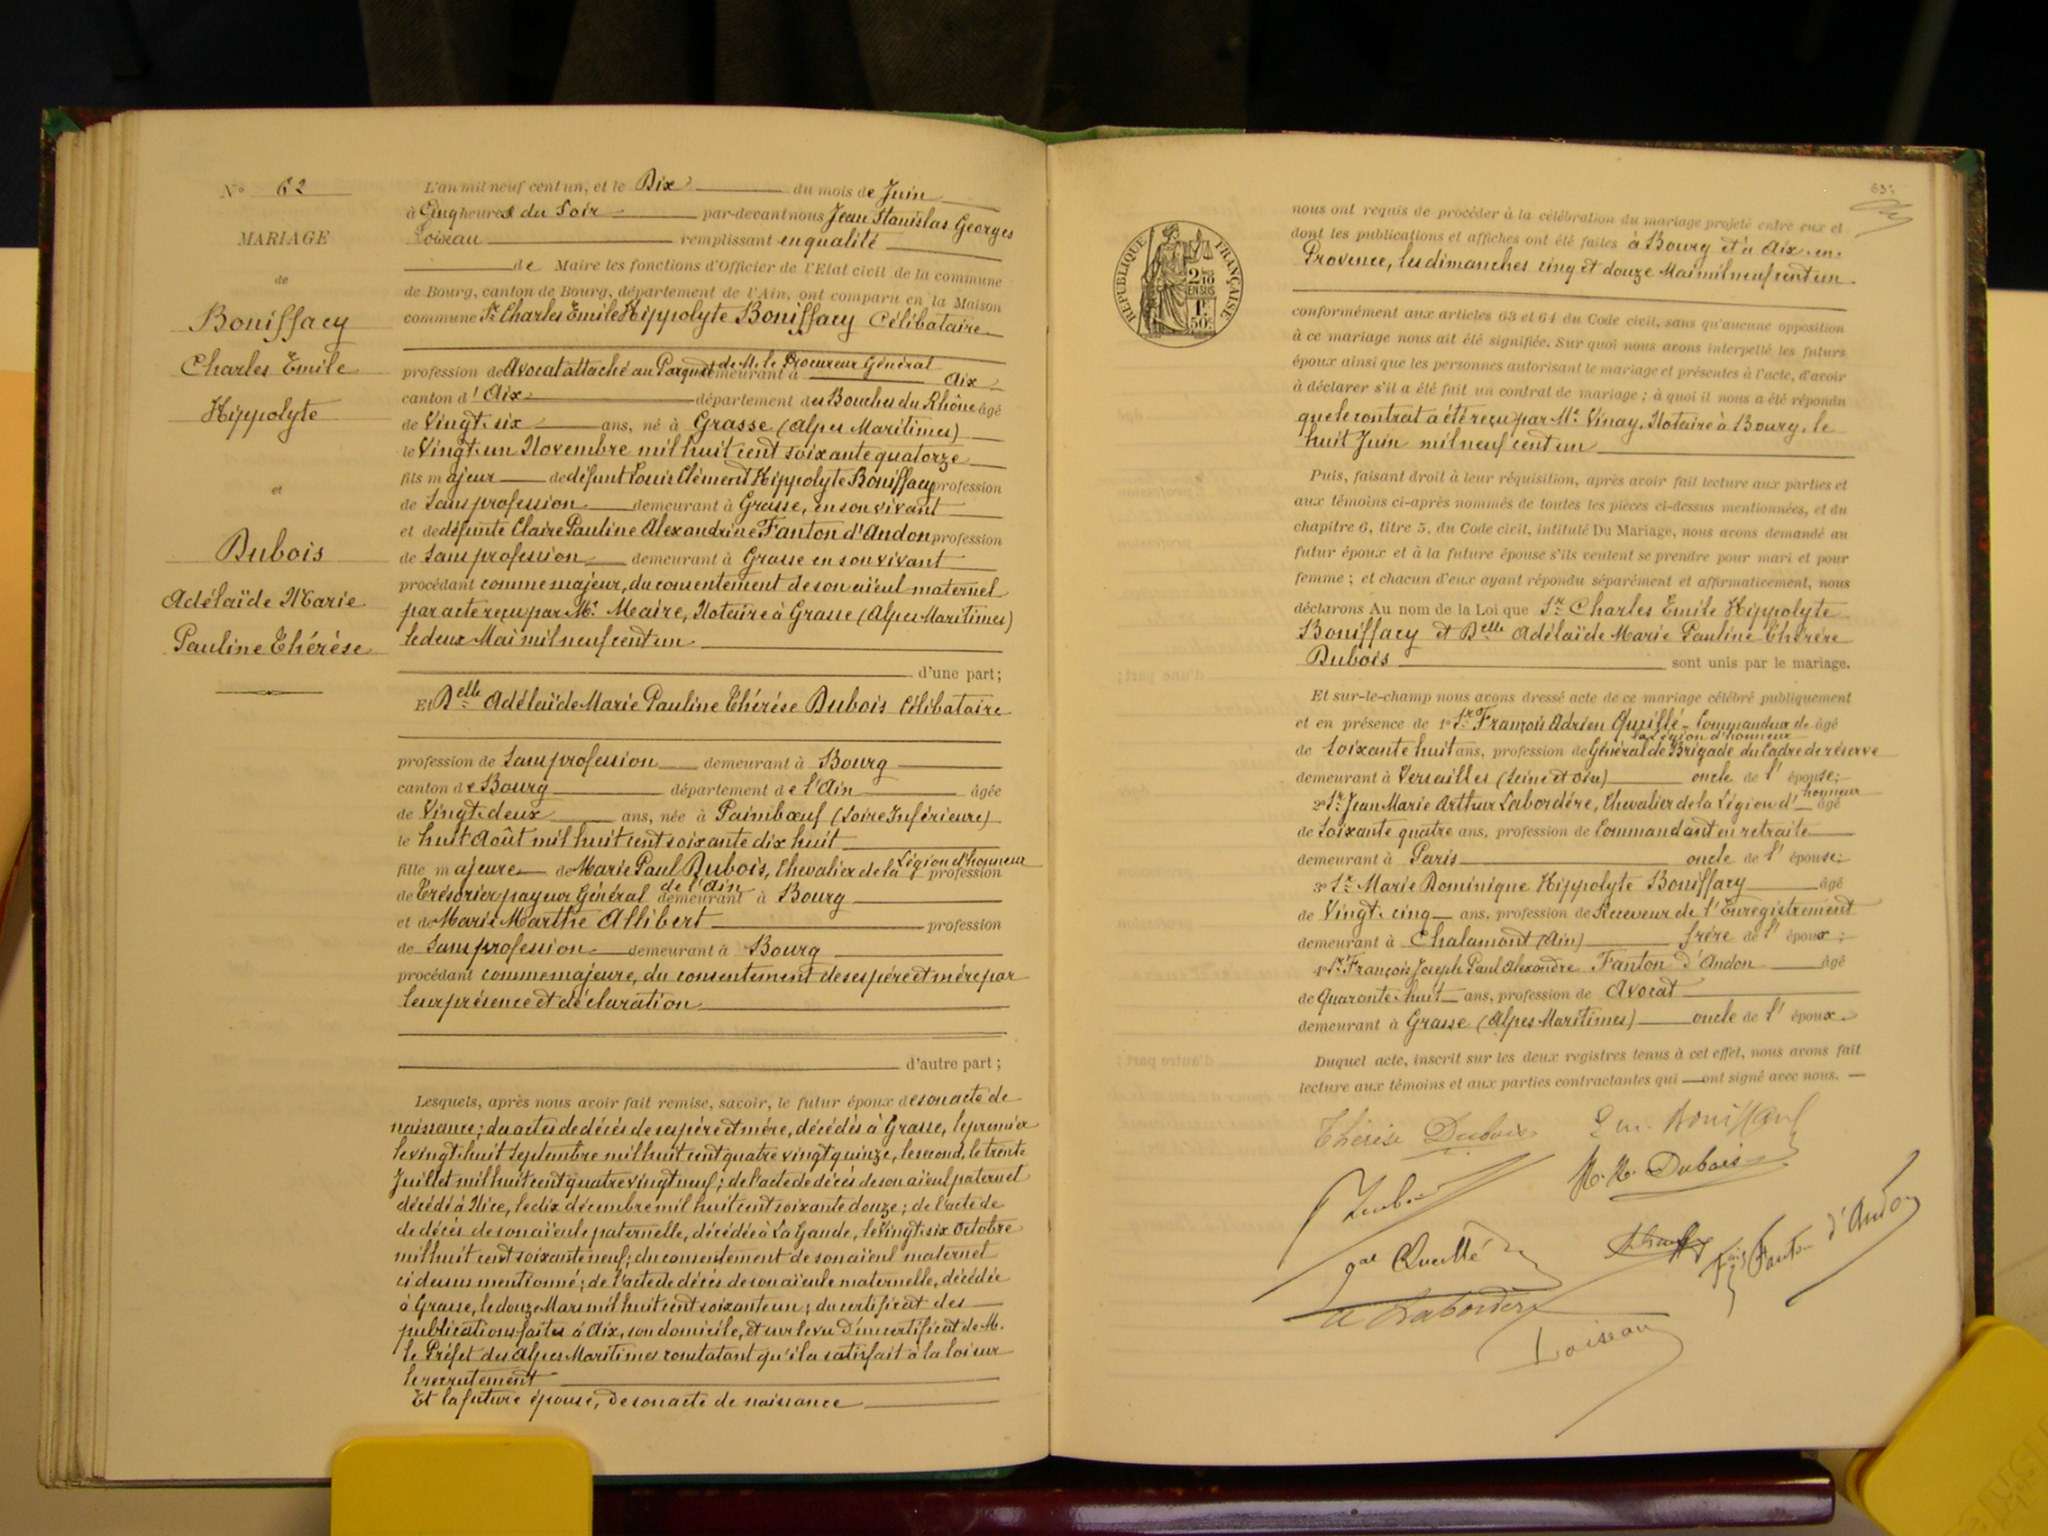 N° 62
MARIAGE
de
Boniffacy
Charles Emile
Hippolyte
et
Dubois
Adélaïde Marie
Pauline Thérèse
L'an mil neuf cent un, et le Dix du mois de Juin
à Cinq heures du Soir par-devant nous Jean Stanislas Georges
Loiseau remplissant en qualité
de Maire les fonctions d'Officier de l'Etat civil de la commune
de Bourg, canton de Bourg, département de l'Ain, ont comparu en la Maison
commune Sr Charles Emile Hippolyte Boniffacy Célibataire
profession de Avocat attaché au Parquet de M. le Procureur Général demeurant à Aix
canton d'Aix département des Bouches du Rhône âgé
de Vingt-six ans, né à Grasse (Alpes Maritimes)
le Vingt-un Novembre mil huit cent soixante quatorze
fils majeur de défunt Louis Clément Hippolyte Boniffacy profession
de Sans profession demeurant à Grasse, en son vivant
et de défunte Claire Pauline Alexandrine Fanton d'Andon profession
de Sans profession demeurant à Grasse en son vivant
procédant comme majeur, du consentement de son aïeul maternel
par acte reçu par Me. Meaire, Notaire à Grasse (Alpes Maritimes)
le deux Mai mil neuf cent un
d'une part;
Et Delle Adélaïde Marie Pauline Thérèse Dubois Célibataire
profession de Sans profession demeurant à Bourg
canton de Bourg département de l'Ain âgée
de Vingt-deux ans, née à Paimbœuf (Loire Inférieure)
le huit Août mil huit cent soixante dix huit
fille majeure de Marie Paul Dubois, Chevalier de la Légion d'honneur profession
de Trésorier payeur Général de l'Ain demeurant à Bourg
et de Marie Marthe Allibert profession
de Sans profession demeurant à Bourg
procédant comme majeure, du consentement de ses père et mère par
leur présence et déclaration
d'autre part;
Lesquels, après nous avoir fait remise, savoir, le futur époux de son acte de
naissance; des actes de décès de ses père et mère, décédés à Grasse, le premier
le vingt-huit Septembre mil huit cent quatre vingt quinze, le second, le trente
Juillet mil huit cent quatre vingt neuf; de l'acte de décès de son aïeul paternel
décédé à Nice, le dix décembre mil huit cent soixante douze; de l'acte de
de décès de son aïeule paternelle, décédée à La Gaude, le Vingt-six Octobre
mil huit cent soixante neuf; du consentement de son aïeul maternel
ci dessus mentionné; de l'acte de décès de son aïeule maternelle, décédée
à Grasse, le douze Mars mil huit cent soixante un; du certificat des
publications faites à Aix, son domicile, et sur le vu d'un certificat de M.
le Préfet des Alpes Maritimes constatant qu'il a satisfait à la loi sur
le recrutement
Et la future épouse, de son acte de naissance
63
RÉPUBLIQUE FRANÇAISE
2/10
EN SUS
1F
50C
nous ont requis de procéder à la célébration du mariage projeté entre eux et
dont les publications et affiches ont été faites à Bourg et à Aix-en-
Provence, les dimanches cinq et douze Mai mil neuf cent un
conformément aux articles 63 et 64 du Code civil, sans qu'aucune opposition
à ce mariage nous ait été signifiée. Sur quoi nous avons interpellé les futurs
époux ainsi que les personnes autorisant le mariage et présentes à l'acte, d'avoir
à déclarer s'il a été fait un contrat de mariage; à quoi il nous a été répondu
que le contrat a été reçu par Me. Vinay, Notaire à Bourg, le
huit Juin mil neuf cent un
Puis, faisant droit à leur réquisition, après avoir fait lecture aux parties et
aux témoins ci-après nommés de toutes les pièces ci-dessus mentionnées, et du
chapitre 6, titre 5, du Code civil, intitulé Du Mariage, nous avons demandé au
futur époux et à la future épouse s'ils veulent se prendre pour mari et pour
femme; et chacun d'eux ayant répondu séparément et affirmativement, nous
déclarons Au nom de la Loi que Sr Charles Emile Hippolyte
Boniffacy et Delle Adélaïde Marie Pauline Thérèse
Dubois sont unis par le mariage.
Et sur-le-champ nous avons dressé acte de ce mariage célébré publiquement
et en présence de 1° Sr François Adrien Quillé - Commandeur de la Légion d'honneur âgé
de Soixante huit ans, profession de Général de Brigade du Cadre de réserve
demeurant à Versailles (Seine et Oise) oncle de l'épouse;
2° Sr Jean Marie Arthur Labordère, Chevalier de la Légion d'honneur âgé
de Soixante quatre ans, profession de Commandant en retraite
demeurant à Paris oncle de l'épouse;
3° Sr Marie Dominique Hippolyte Boniffacy âgé
de Vingt-cinq ans, profession de Receveur de l'Enregistrement
demeurant à Chalamont (Ain) frère de l'époux;
4° Sr François Joseph Paul Alexandre Fanton d'Andon âgé
de Quarante-huit ans, profession de Avocat
demeurant à Grasse (Alpes Maritimes) oncle de l'époux.
Duquel acte, inscrit sur les deux registres tenus à cet effet, nous avons fait
lecture aux témoins et aux parties contractantes qui ont signé avec nous.
Thérèse Dubois
Boniffacy
M. M. Dubois
Gal Queillé
Fanton d'Andon
A Labordère
Loiseau